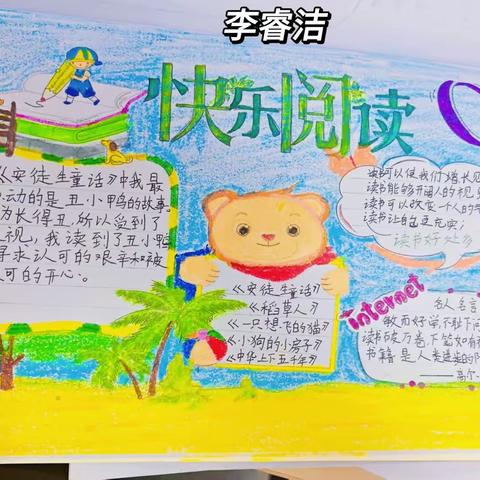 李睿洁
快乐阅读
《安徒生童话》中我最
动的是丑小鸭的故事
为长得丑,所以受到了
视,我读到了丑小鸭
寻求认可的艰辛和被
可的开心。
《安徒生童话》
《稻草人》
《一只想飞的猫》
《小狗的小房子》
《中华上下五千年》
可以使我们增长见
读书能够开阔人的视
读书可以改变一个人的
读书让自己更充实;
读书好处多
internet
名人名言
敏而好学,不耻下问
读书破万卷,下笔如有
书籍是人类进步的阶
——高尔